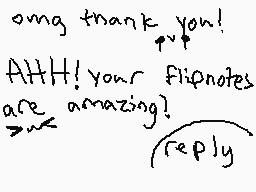 omg thank you!
pvp
AHH! your flipnotes
are amazing!
>w<
reply